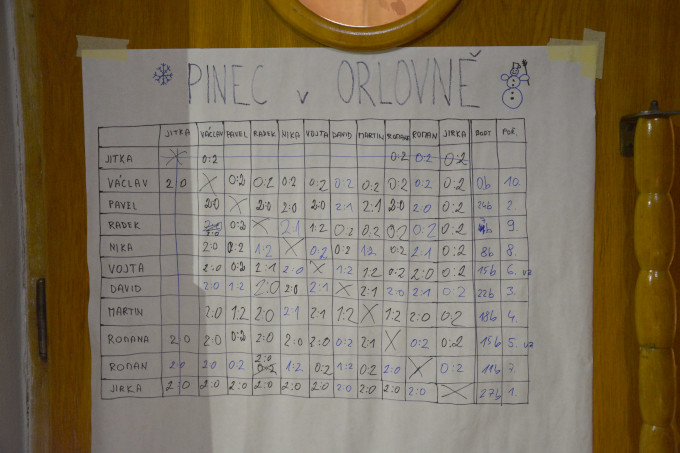 PINEC v ORLOVNĚ
JITKA VÁCLAV PAVEL RADEK NIKA VOJTA DAVID MARTIN ROMANA ROMAN JIRKA BODY POŘ.
JITKA 0:2 0:2 0:2 0:2
VÁCLAV 2:0 0:2 0:2 0:2 0:2 0:2 0:2 0:2 0:2 0:2 0b 10.
PAVEL 2:0 2:0 2:0 2:0 2:1 2:1 2:0 2:0 0:2 24b 2.
RADEK 0:2 2:1 1:2 0:2 0:2 0:2 0:2 0:2 9.
NIKA 2:0 0:2 1:2 0:2 0:2 1:2 0:2 2:1 0:2 8b 8.
VOJTA 2:0 0:2 2:1 2:0 1:2 1:2 0:2 2:0 0:2 15b 6. vz
DAVID 2:0 1:2 2:0 2:0 2:1 2:1 2:0 2:1 0:2 22b 3.
MARTIN 2:0 1:2 2:0 2:1 2:1 1:2 1:2 2:0 0:2 18b 4.
ROMANA 2:0 2:0 0:2 2:0 2:0 2:0 0:2 2:1 0:2 0:2 15b 5. vz
ROMAN 2:0 2:0 0:2 2:0 1:2 0:2 1:2 0:2 2:0 0:2 11b 7.
JIRKA 2:0 2:0 2:0 2:0 2:0 2:0 2:0 2:0 2:0 2:0 27b 1.